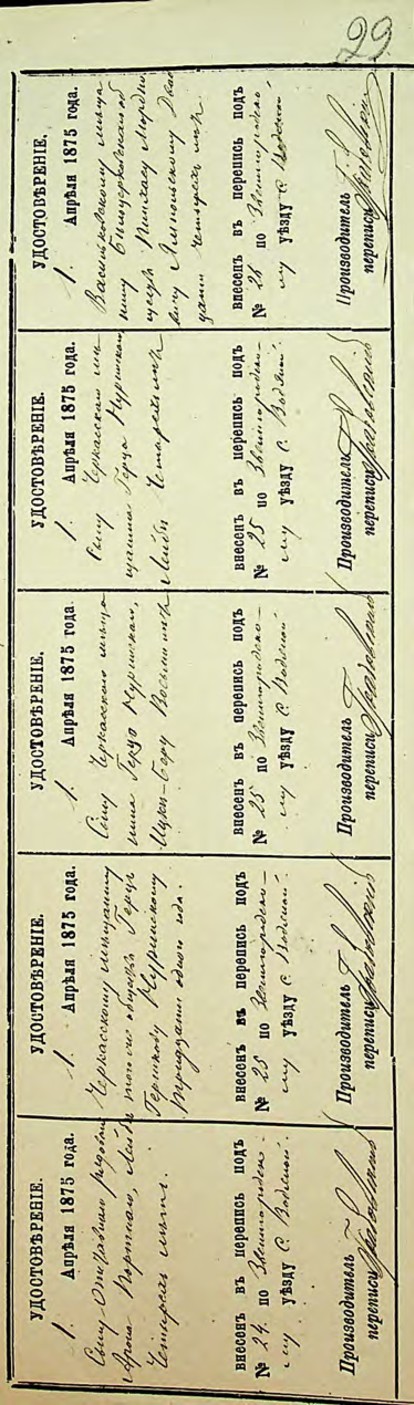 29
УДОСТОВѢРЕНІЕ.
1. Апрѣля 1875 года.
Сыну Отставнаго рядоваго
Арона Портнаго, Лейбѣ
Четырехъ лѣтъ.
внесенъ въ перепись подъ
№ 24 по Звенигородско-
му уѣзду С. Водяной.
Производитель
переписи
УДОСТОВѢРЕНІЕ.
1. Апрѣля 1875 года.
Черкасскому мѣщанину
того же общества Герцъ
Гершкову Муринскому
Тридцати одного года.
внесенъ въ перепись подъ
№ 25 по Звенигородско-
му уѣзду С. Водяной.
Производитель
переписи
УДОСТОВѢРЕНІЕ.
1. Апрѣля 1875 года.
Сыну Черкасскаго мѣща
нина Герцо Муринскаго,
Ицко-Беру Восьми лѣтъ
внесенъ въ перепись подъ
№ 25 по Звенигородско-
му уѣзду С. Водяной.
Производитель
переписи
УДОСТОВѢРЕНІЕ.
1. Апрѣля 1875 года.
Сыну Черкасскаго мѣ
щанина Герца Муринскаго
Лейбѣ Четырехъ лѣтъ
внесенъ въ перепись подъ
№ 25 по Звенигородско-
му уѣзду С. Водяной.
Производитель
переписи
УДОСТОВѢРЕНІЕ.
1. Апрѣля 1875 года.
Васильковскому мѣща
нину Бѣлоцерковскаго об
щества Пинхасу Мордко
вичу Двад
цати четырехъ лѣтъ.
внесенъ въ перепись подъ
№ 26 по Звенигородско
му уѣзду С. Водяной.
Производитель
переписи